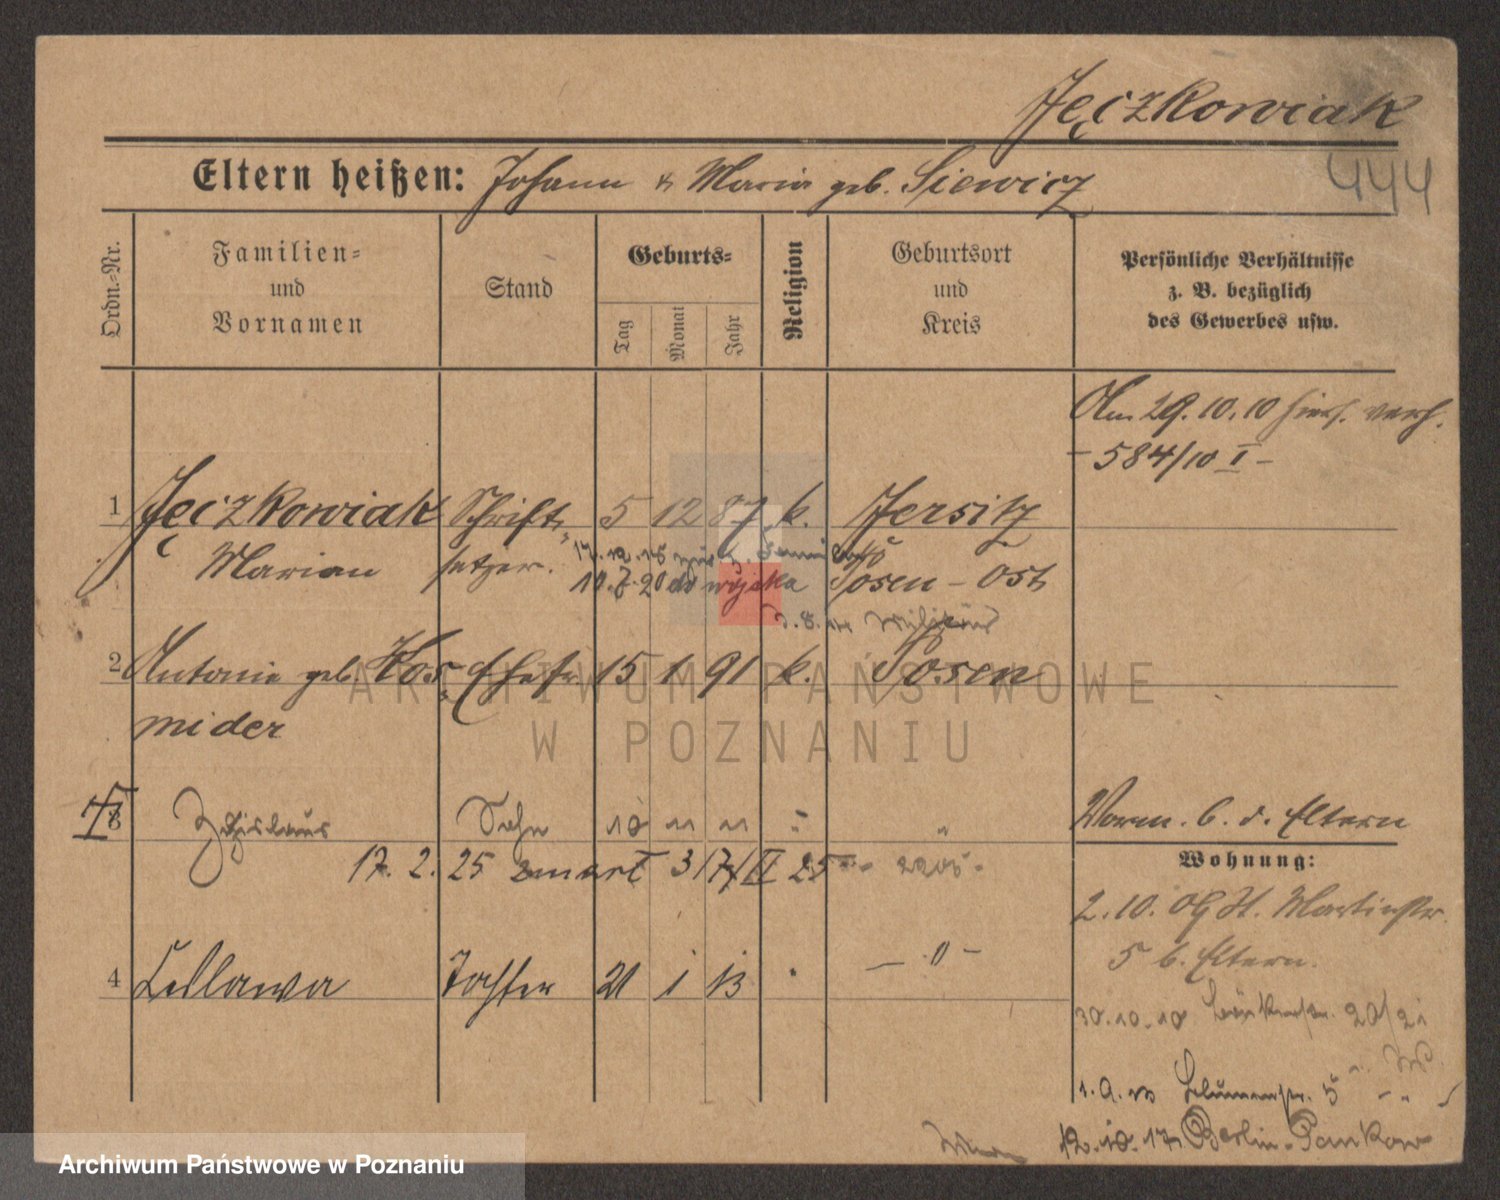 Jęczkowiak
444
Eltern heißen: Johann & Maria geb. Siewicz
Ordn.-Nr.
Familien-
und
Vornamen
Stand
Geburts-
Tag
Monat
Jahr
Religion
Geburtsort
und
Kreis
Persönliche Verhältnisse
z. B. bezüglich
des Gewerbes usw.
Am 29.10.10 hies. verh.
- 584/10 I -
1 Jęczkowiak Schrift- 5 12 87 k. Jersitz
Marian setzer. Posen - Ost
10.7.20 do wojska
Militär
2 Antonie geb. Kos- Ehefr. 15 1 91 k. Posen
mider
3 Sohn 10 11 11 "
Vorm. b. d. Eltern
17. 2. 25 zmarł 317/II 25
Wohnung:
2.10.09 St. Martinstr.
5 b. Eltern.
4 Tochter 21 1 13 " - " -
30.10.10 20/21
1.9. Blumenstr. 5 " "
12.10.17 Berlin-Pankow
ARCHIWUM PAŃSTWOWE
W POZNANIU
Archiwum Państwowe w Poznaniu